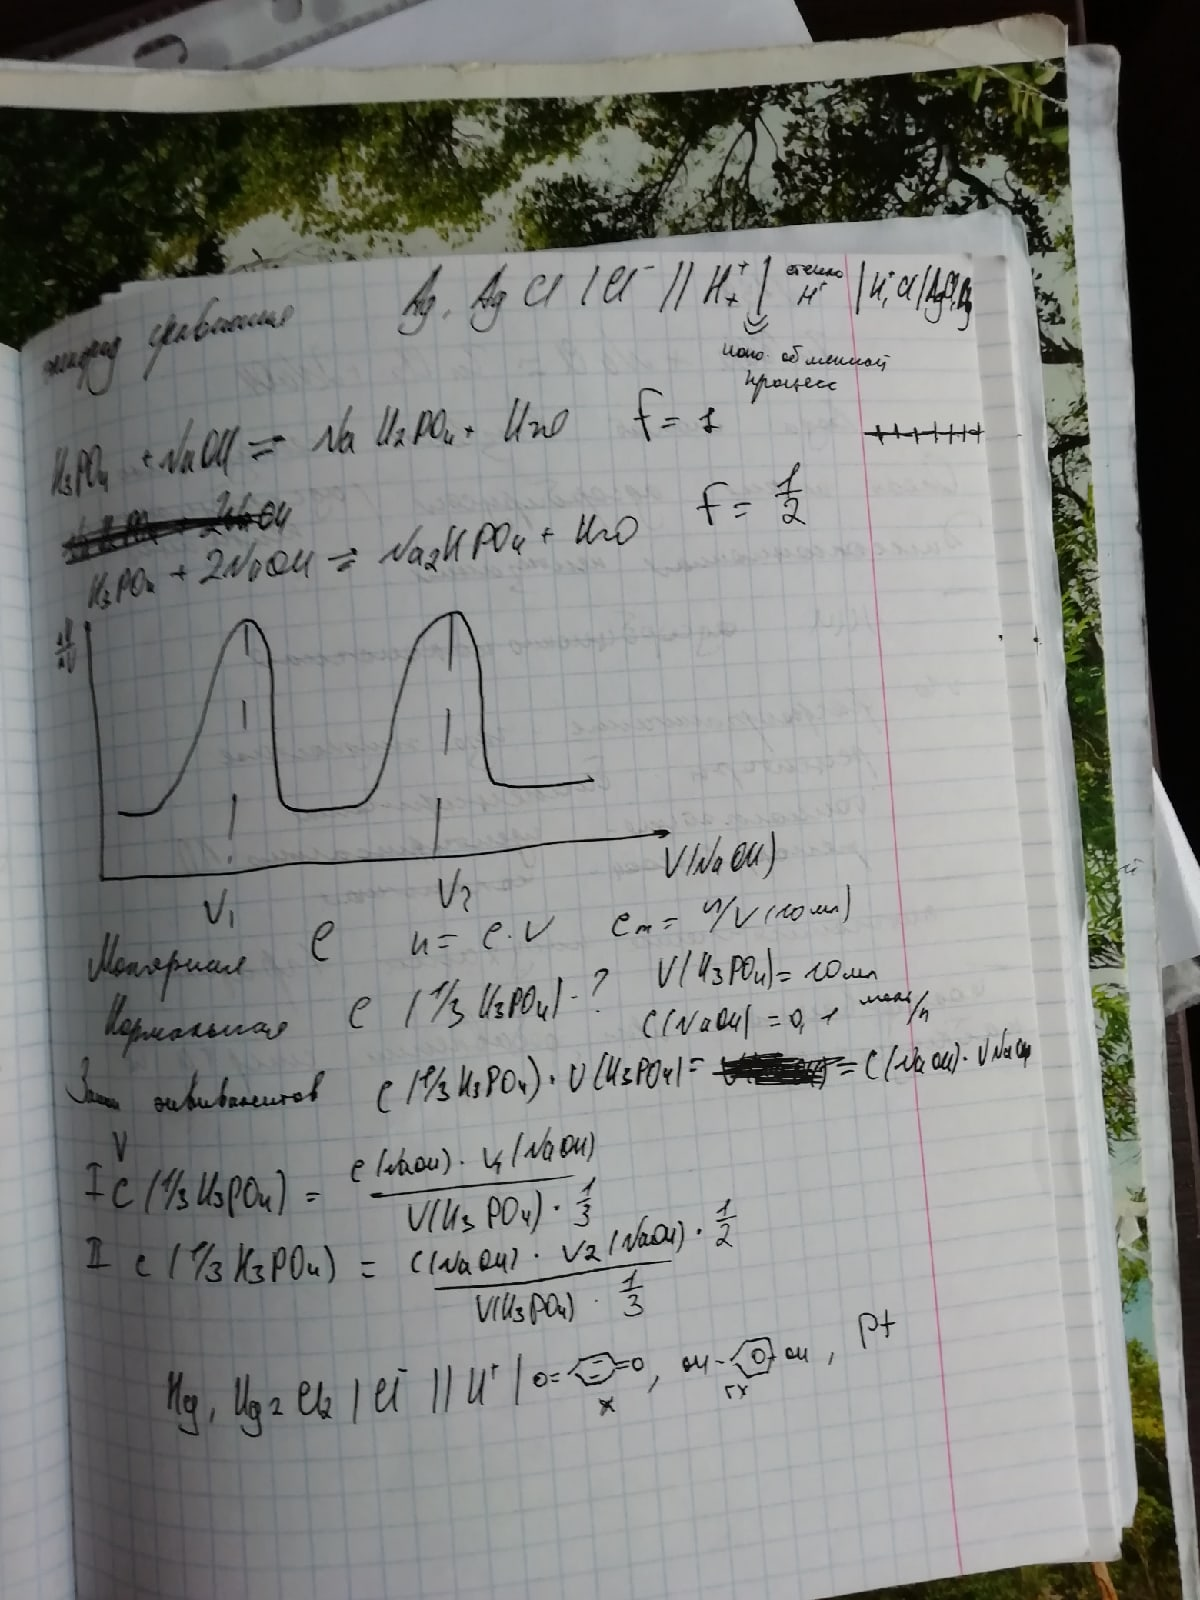 Ag, AgCl | Cl⁻ || H⁺ₓ | стекло H⁺ | H⁺, Cl⁻ | AgCl, Ag
электрод сравнения
ионообменной
процесс
H₃PO₄ + NaOH ⇌ NaH₂PO₄ + H₂O f = 1
H₃PO₄ + 2NaOH ⇌ Na₂HPO₄ + H₂O f = 1/2
V(NaOH)
V₁ V₂
Молярная C n = C·V Cm = n/V(10мл)
Нормальная C (1/3 H₃PO₄) - ? V(H₃PO₄) = 10мл
C(NaOH) = 0,1 моль/л
Закон эквивалентов C(1/3 H₃PO₄) · V(H₃PO₄) = = C(NaOH) · V NaOH
V
I C (1/3 H₃PO₄) = C(NaOH) · V₁(NaOH) / V(H₃PO₄) · 1/3
II C (1/3 H₃PO₄) = C(NaOH) · V₂(NaOH) · 1/2 / V(H₃PO₄) · 1/3
Hg, Hg₂Cl₂ | Cl⁻ || H⁺ | O= =O, OH- -OH, Pt
x гх